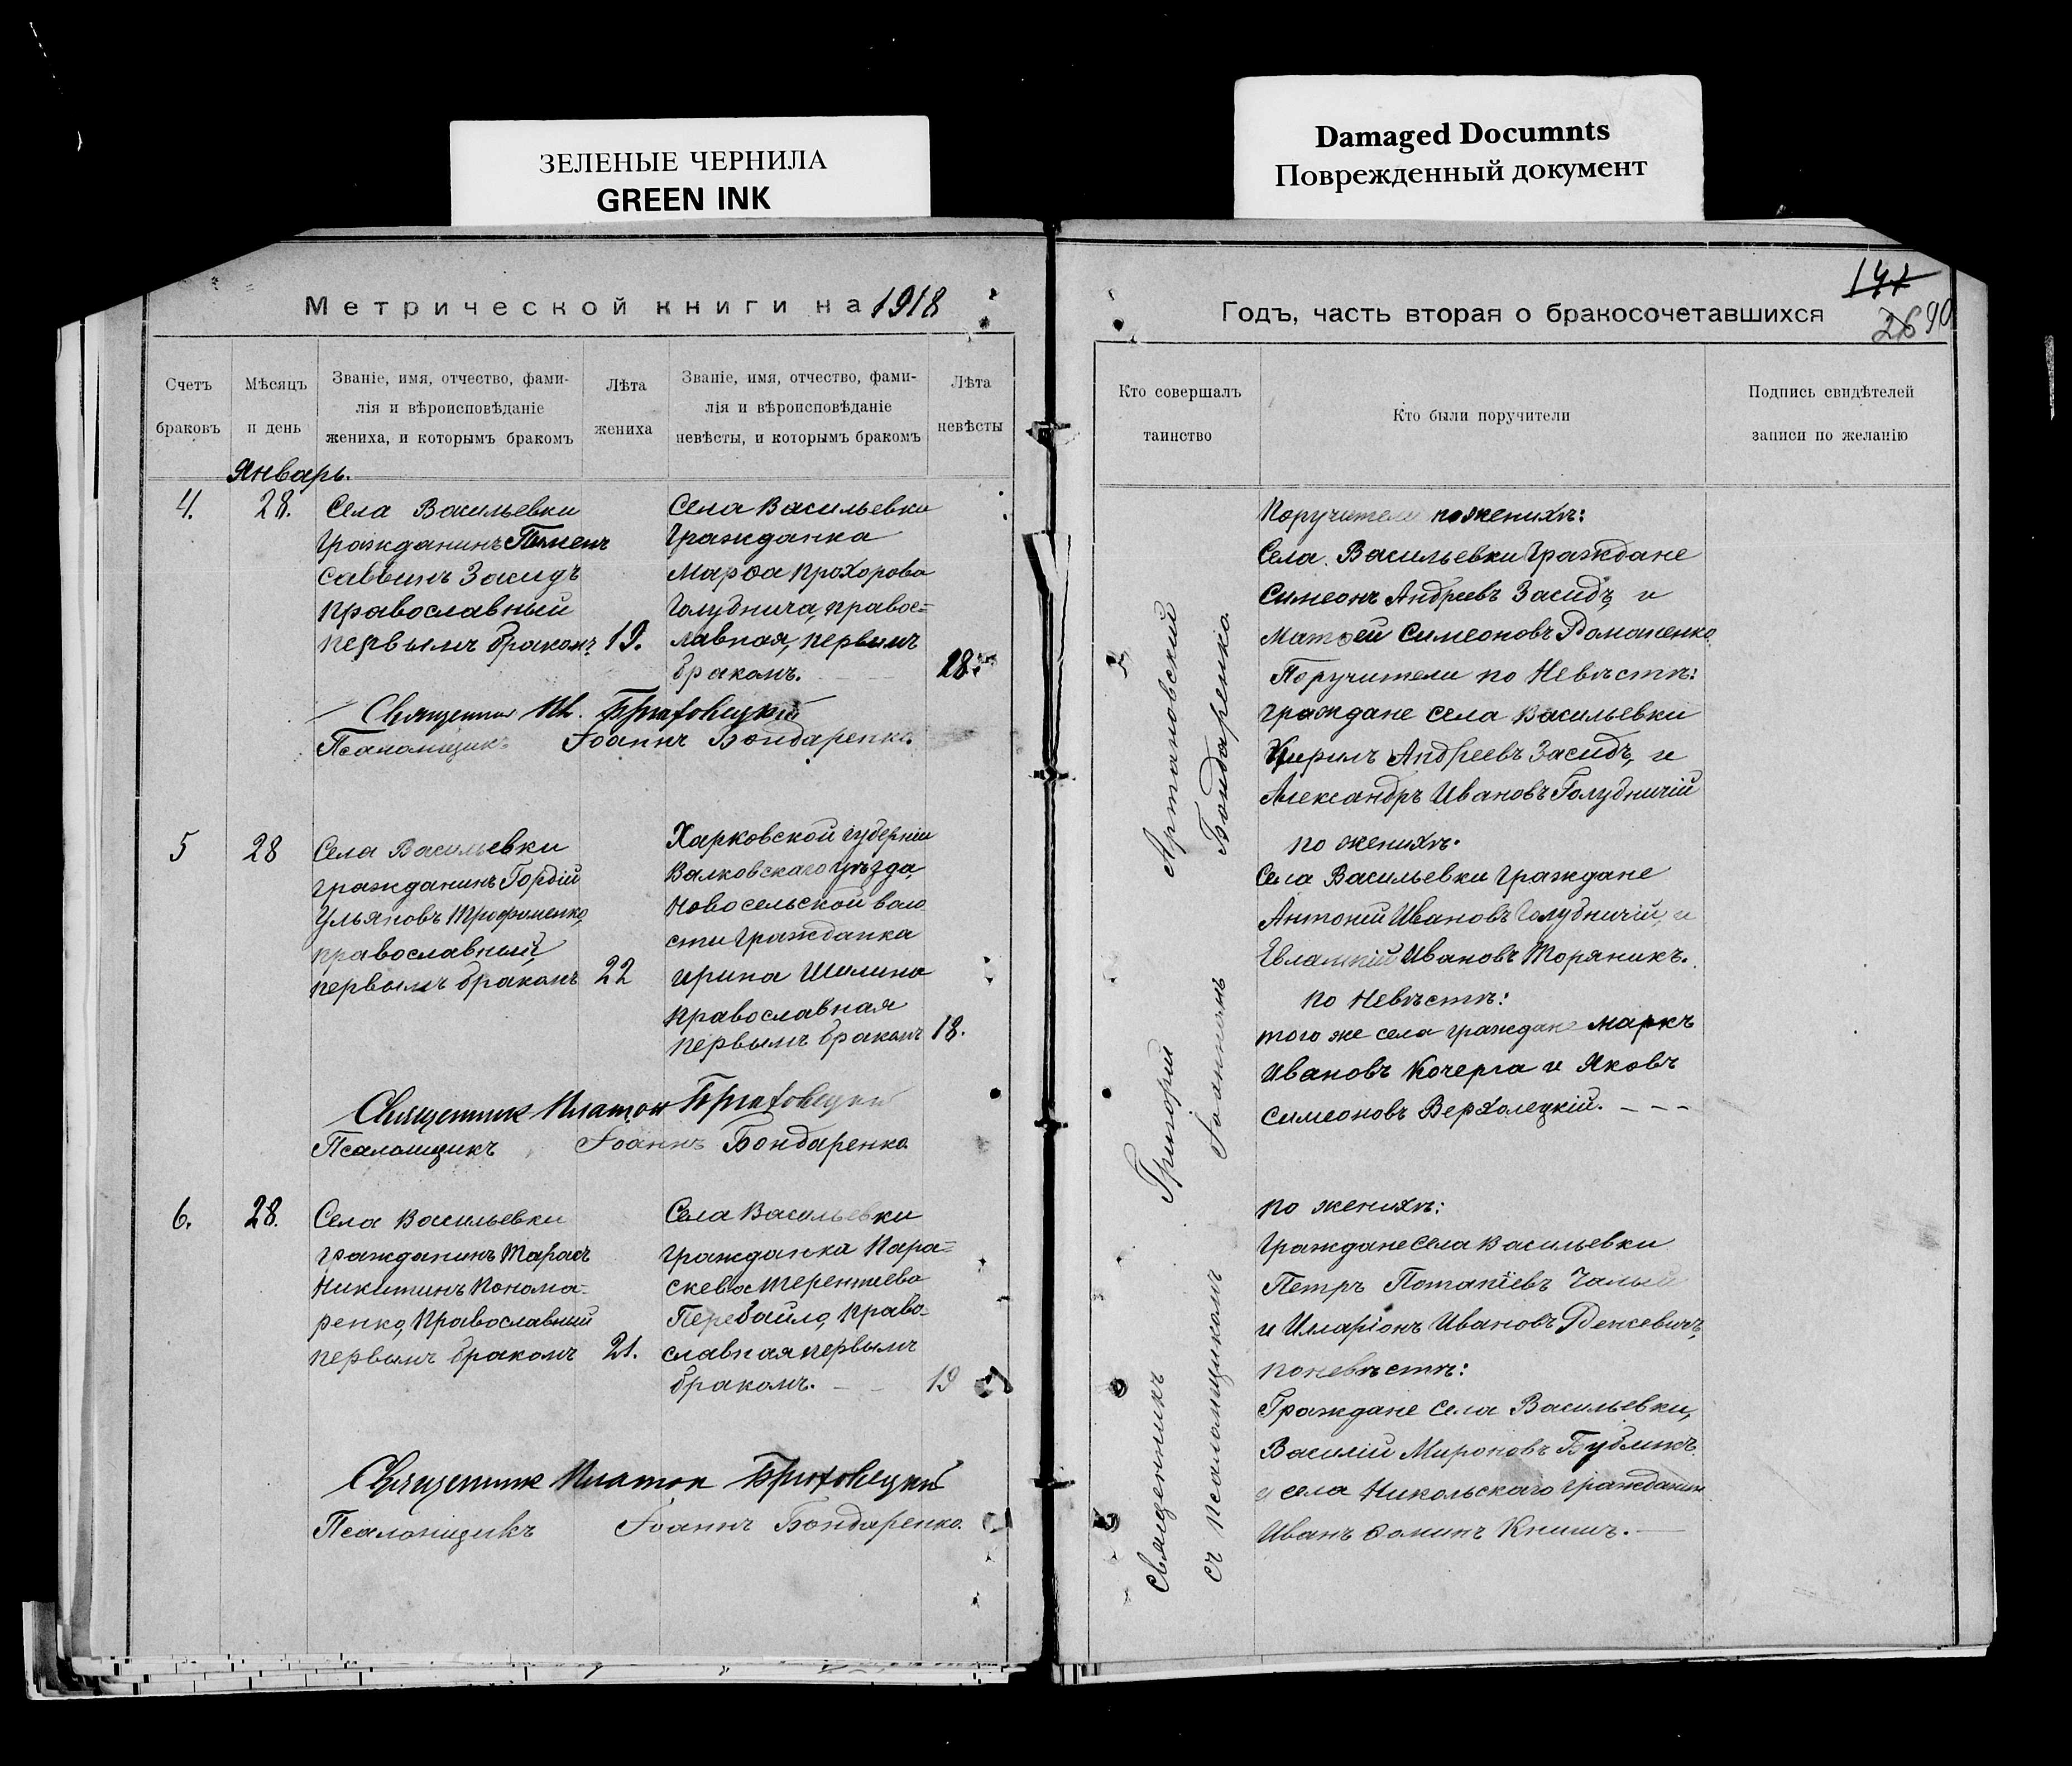 ЗЕЛЕНЫЕ ЧЕРНИЛА
GREEN INK
Damaged Documnts
Поврежденный документ
Метрической книги на 1918
Счетъ браковъ
Мѣсяцъ и день
Званіе, имя, отчество, фами-
лія и вѣроисповѣданіе
жениха, и которымъ бракомъ
Лѣта жениха
Званіе, имя, отчество, фами-
лія и вѣроисповѣданіе
невѣсты, и которымъ бракомъ
Лѣта невѣсты
Январь.
4.
28.
Села Васильевки
гражданинъ Пименъ
Саввинъ Засидъ
православный
первымъ бракомъ.
19.
Села Васильевки
гражданка
Марѳа Прохорова
Голуднича, правос=
лавная, первымъ
бракомъ.
18.
Священник Пл.
Псаломщикъ Іоаннъ Бондаренко.
5
28
Села Васильевки
гражданинъ Гордій
Ульяновъ Трофименко,
православный,
первымъ бракомъ
22
Харковской губерніи
Валковскаго уѣзда,
Новосельской воло
сти гражданка
Ирина Шилина
православная
первымъ бракомъ
18.
Священник Платон
Псаломщикъ Іоаннъ Бондаренко
6.
28.
Села Васильевки
гражданинъ Тарасъ
Никитинъ Понома-
ренко, Православный
первымъ бракомъ
21.
Села Васильевки
гражданка Пара=
скева Терентиева
Перебайло, право-
славная первымъ
бракомъ.
19
Священник Платон
Псаломщикъ Іоаннъ Бондаренко.
Годъ, часть вторая о бракосочетавшихся
141
26 90
Кто совершалъ
таинство
Кто были поручители
Подпись свидѣтелей
записи по желанію
Священникъ Григорій Артановский
съ псаломщикомъ Іоанномъ Бондаренко.
Поручители по женихѣ:
Села Васильевки граждане
Симеонъ Андреевъ Засидъ, и
Матѳей Симеоновъ Романенко.
Поручители по Невѣстѣ:
граждане села Васильевки
Кирилъ Андреевъ Засидъ, и
Александръ Ивановъ Голудничій
по женихѣ.
Села Васильевки граждане
Антоній Ивановъ Голудничій, и
Евлампій Ивановъ Торяникъ.
по Невѣстѣ:
того же села граждане Маркъ
Ивановъ Кочерга и Яковъ
Симеоновъ Верхолецкій. - - -
по женихѣ:
Граждане села Васильевки
Петръ Потапіевъ Чалый
и Иларіонъ Ивановъ
по невѣстѣ:
Граждане Села Васильевки,
Василій Мироновъ Бубликъ
и села Никольскаго гражданин
Иванъ Ѳоминъ Книшъ.